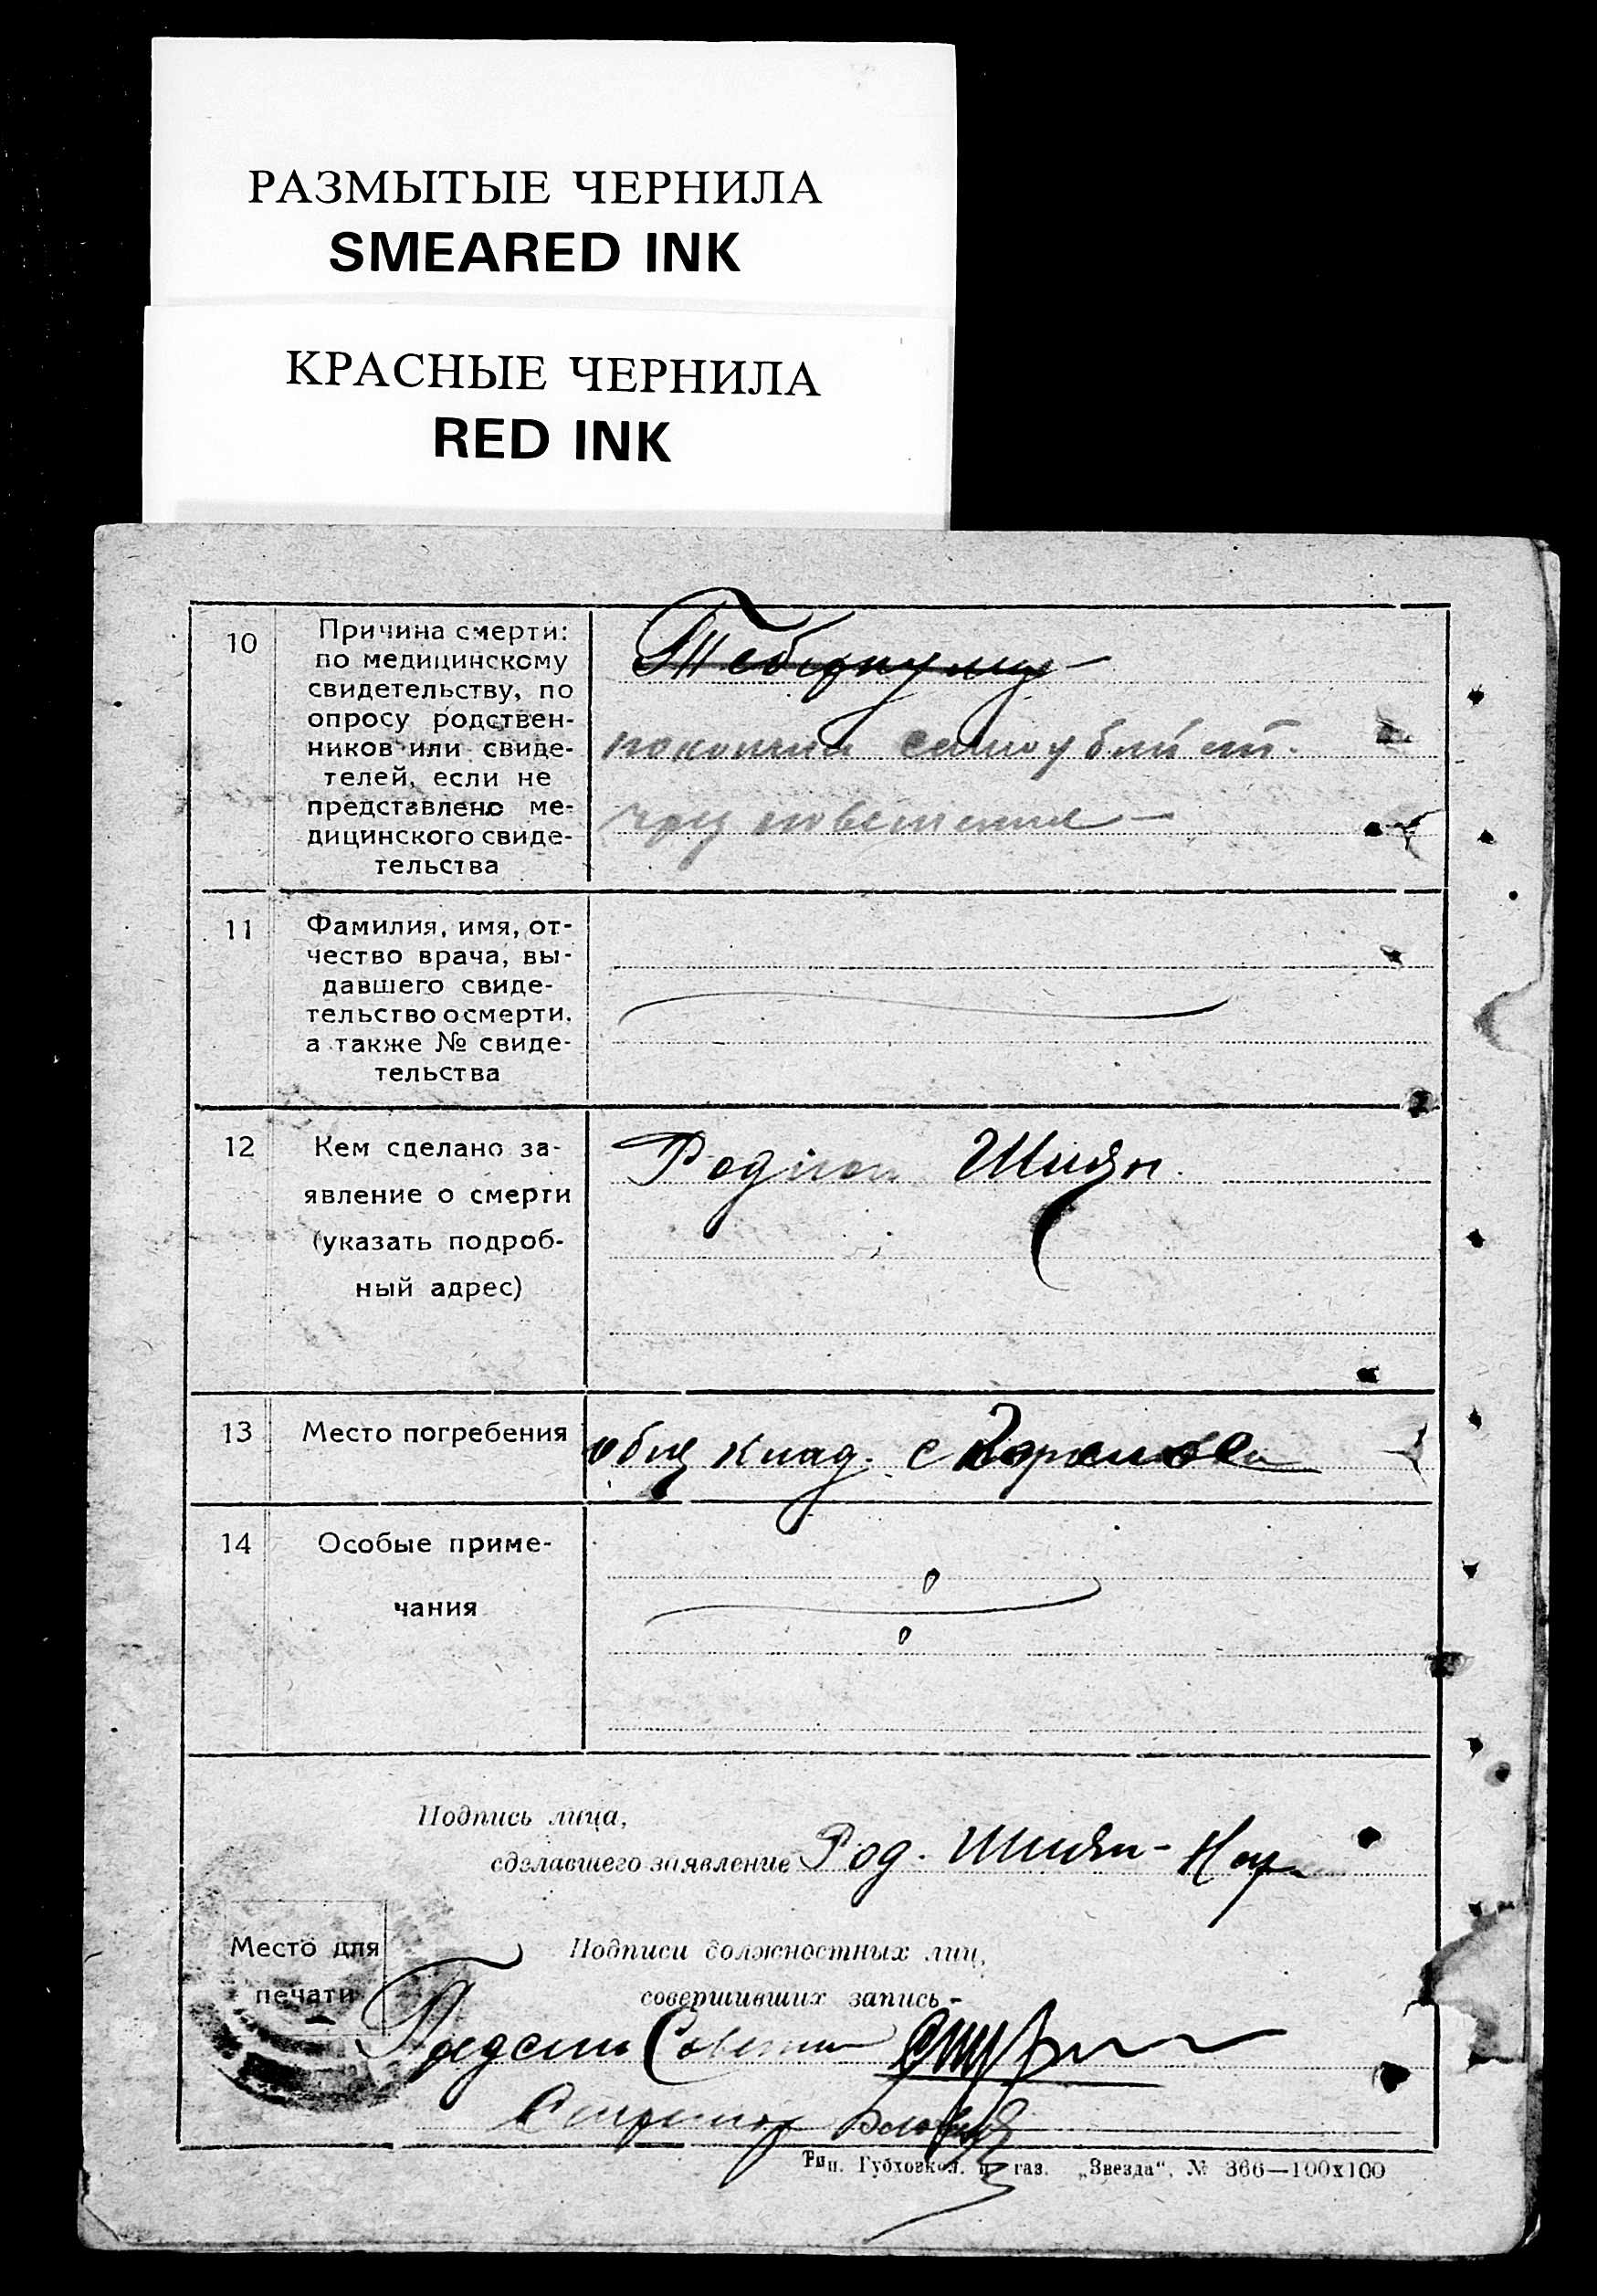 РАЗМЫТЫЕ ЧЕРНИЛА
SMEARED INK
КРАСНЫЕ ЧЕРНИЛА
RED INK
10
Причина смерти:
по медицинскому
свидетельству, по
опросу родствен-
ников или свиде-
телей, если не
представлено ме-
дицинского свиде-
тельства
самоубийст.
11
Фамилия, имя, от-
чество врача, вы-
давшего свиде-
тельство о смерти,
а также № свиде-
тельства
12
Кем сделано за-
явление о смерти
(указать подроб-
ный адрес)
Родион Шиян.
13
Место погребения
общ клад. с
14
Особые приме-
чания
Подпись лица,
сделавшего заявление Род. Шиян -
Место для
печати
Подписи должностных лиц,
совершивших запись -
Предсть Совета
Секретарь
Тип. Губховкол. п. газ. „Звезда“, № 366—100х100